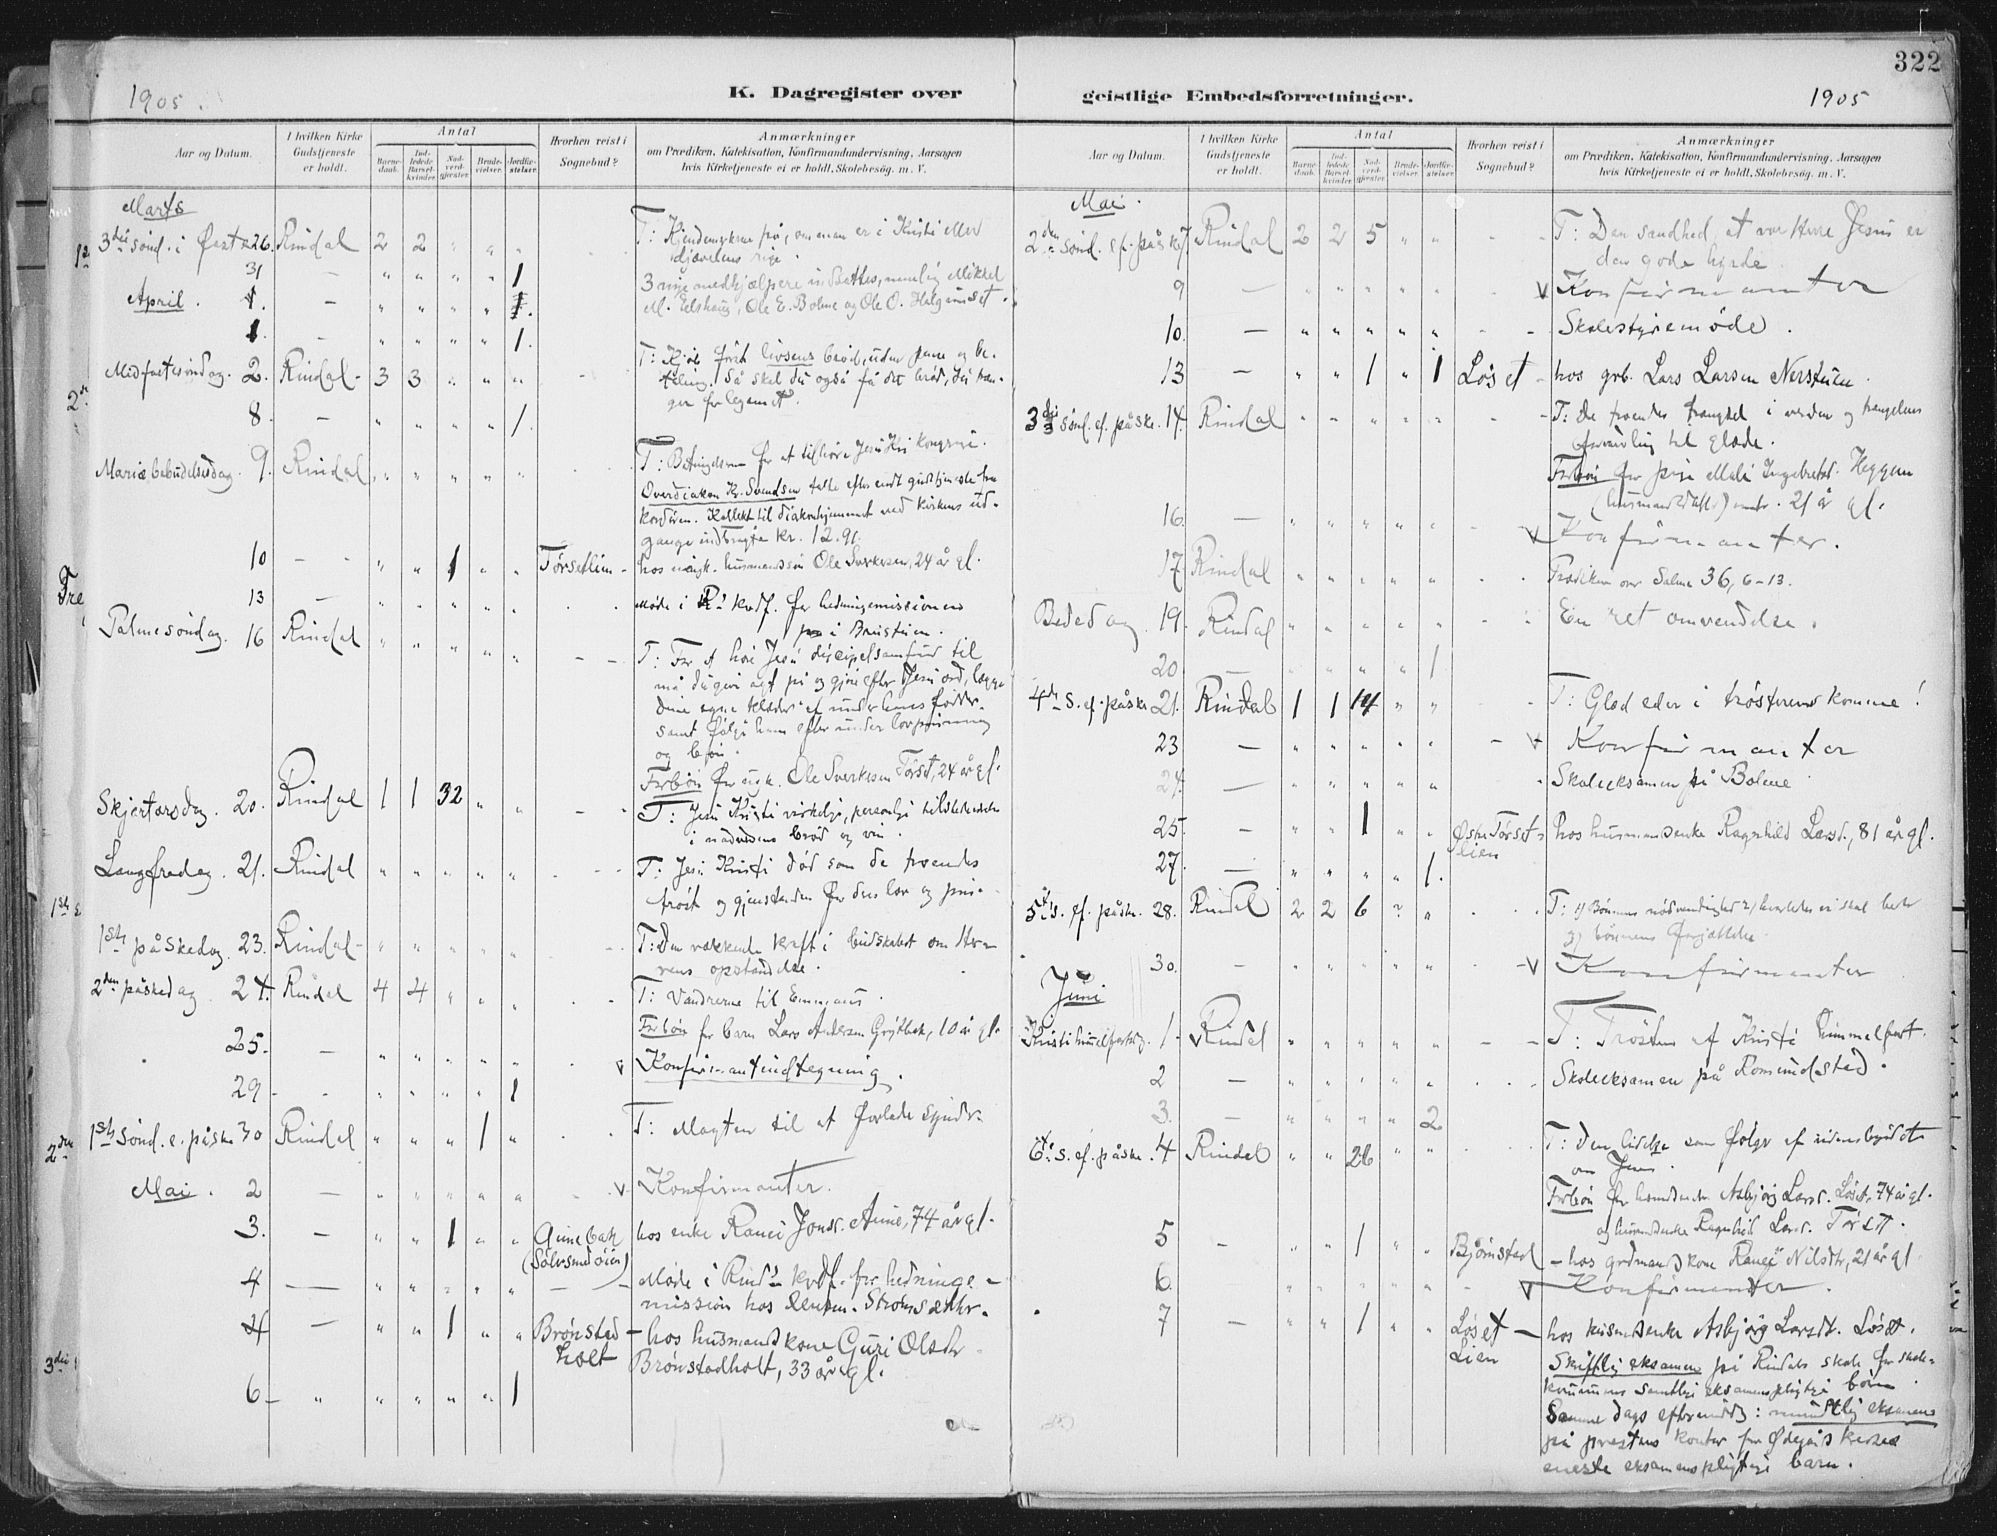 322
1905.
K. Dagregister over
geistlige Embedsforretninger.
1905
Aar og Datum.
I hvilken Kirke Gudstjeneste er holdt.
Antal
Barne-daab.
Ind-ledede Barsel-kvinder.
Nad-verd-gjæster.
Brude-vielser.
Jordfæ-stelser.
Hvorhen reist i Sognebud?
Anmærkninger
om Prædiken, Katekisation, Konfirmandundervisning, Aarsagen
hvis Kirketjeneste ei er holdt, Skolebesøg, m. V.
Marts
3die sønd. i Faste 26. Rindal 2 2 " " " T: Kjendemerkene på, om man er i Kristi eller
djævelens rige.
31 — " " " " 1 3 nye medhjælpere indsattes, nemlig Mikkel
April. 1. — " " " " 1. M. , Ole E. Bolme og Ole O. .
1. — " " " " 1.
Midfastesøndag. 2. Rindal 3 3 " " " T: Kjøb først livsens brød, uden penge og be-
taling. Så skal du også få det brød, du træn-
ger for legemet.
8. — " " " " 1.
Mariæ bebudelsesdag 9. Rindal " " " " " T: Betingelsen for at tilhøre Jesu Kristi kongerige.
Overdiakon Kr. Svendsen talte efter endt gudstjeneste fra
kordøren. Kollekt til diakonhjemmet ved kirkens ud-
gange indbragte kr. 12.91.
10 — " " 1 " " Tørsetlien - hos ungk. husmandssøn Ole Sverkesen, 24 år gl.
13 — " " " " " Møde i R's kvdf. for hedningemissionen
i Brustuen.
Palmesøndag. 16 Rindal " " " " " T: For at høre Jesu discipelsamfund til
må du give agt på og gjøre efter Jesu ord, lægge
dine egne klæder af under hans fødder
samt følge ham efter under lovprisning
og bøn.
Forbøn for ugk. Ole Sverkesen Tørset, 24 år gl.
Skjertorsdag. 20. Rindal 1 1 32 " " T: Jesu Kristi virkelige, personlige tilstedeværelse
i nadverdens brød og vin.
Langfredag. 21. Rindal " " " " " T: Jesu Kristi død som de troendes
trøst og gjenstanden for deres lov og pris.
1ste påskedag 23. Rindal " " " " " T: Den vækkende kraft i budskabet om Her-
rens opstandelse.
2den påskedag 24. Rindal 4 4 " " " T: Vandrerne til Emmaus.
Forbøn for barn Lars Andersen Grytbak, 10 år gl.
25. — " " " " " V Konfirmantindtegning.
29 - " " " " 1
1ste sønd. e. påske 30 Rindal " " " 1 " T: Magten til at forlade synder.
Mai. 2 — " " " " " V Konfirmanter.
3. — " " 1 " " Aunebak
(Sølvsmedøien) hos enke Ranei Jonsd. Aune, 74 år gl.
4 — " " " " " — Møde i Rind's kvdf. for hedninge-
mission hos .
4 — " " 1 " " Brønstad
holt — hos husmandskone Guri Olsdtr
Brønstadholt, 33 år gl.
6 " " " " " 1
Aar og Datum.
I hvilken Kirke Gudstjeneste er holdt.
Antal
Barne-daab.
Ind-ledede Barsel-kvinder.
Nad-verd-gjæster.
Brude-vielser.
Jordfæ-stelser.
Hvorhen reist i Sognebud?
Anmærkninger
om Prædiken, Katekisation, Konfirmandundervisning, Aarsagen
hvis Kirketjeneste ei er holdt, Skolebesøg, m. V.
Mai.
2den sønd. ef. påske 7 Rindal 2 2 5 " " - - T: Den sandhed, at vor Herre Jesus er
den gode hyrde.
9 — " " " " " V Konfirmanter
10. — " " " " " - - Skolestyremøde.
13 — " " 1 " 1 Løset - hos grb. Lars Larsen Nerstuen.
3die sønd. ef. påske. 14. Rindal " " " " " - T: De troendes trængsel i verden og trængselens
forvandling til glæde.
Forbøn for pige Mali Ingebrtsd. Heggem
(husmandsdatter) 21 år gl.
16. — " " " " " V Konfirmanter.
17 Rindal " " " " " Prædiken over Salme 36, 6-13.
Bededag 19. Rindal " " " " " En ret omvendelse.
20 — " " " " 1
4de S. ef. påske 21. Rindal 1 1 14 " " T: Glæd eder i trøsterens komme!
23 — " " " " " V Konfirmanter
24. — " " " " " Skoleeksamen på Bolme
25 — " " 1 " " Øster Tørset-
lien hos husmandsenke Ragnhild Larsd., 81 år gl.
27. — " " " " 1.
5te S. ef. påske. 28. Rindal 2 2 6 " " T: 1) Bønnens nødvendighed 2) hvorledes vi skal bede
3) bønnens forjættelse.
30. — " " " " " V Konfirmanter
Juni
Kristi himmelfartsdg. 1. Rindal " " " " " — T: Trøsten af Kristi himmelfart.
2 — " " " " " Skoleeksamen på Romundstad.
3. — " " " " 2
6te S. ef. påske. 4 Rindal " " 26 " " T: Den lidelse som følger af vidnesbyrdet
om Jesus.
Forbøn for husmdsenke Asbjørg Larsd. Løset, 74 år gl.
og husmdsenke Ragnhild Larsd. Tørset.
5 — " " 1 " " Bjørnstad — hos grdmandskone Ranei Nilsdtr, 21 år gl
6. " " " " " V Konfirmanter.
7 — " " 1 " " Løset
Lien — hos husmdsenke Asbjørg Larsdt. Løset.
Skriftlig eksamen på Rindals skole for skole-
kommunens samtlige eksamenspligtige børn.
Samme dags eftermiddg: mundtlig eksamen
på prestens kontor for Ødegårds kredses
eneste eksamenspligtige barn.